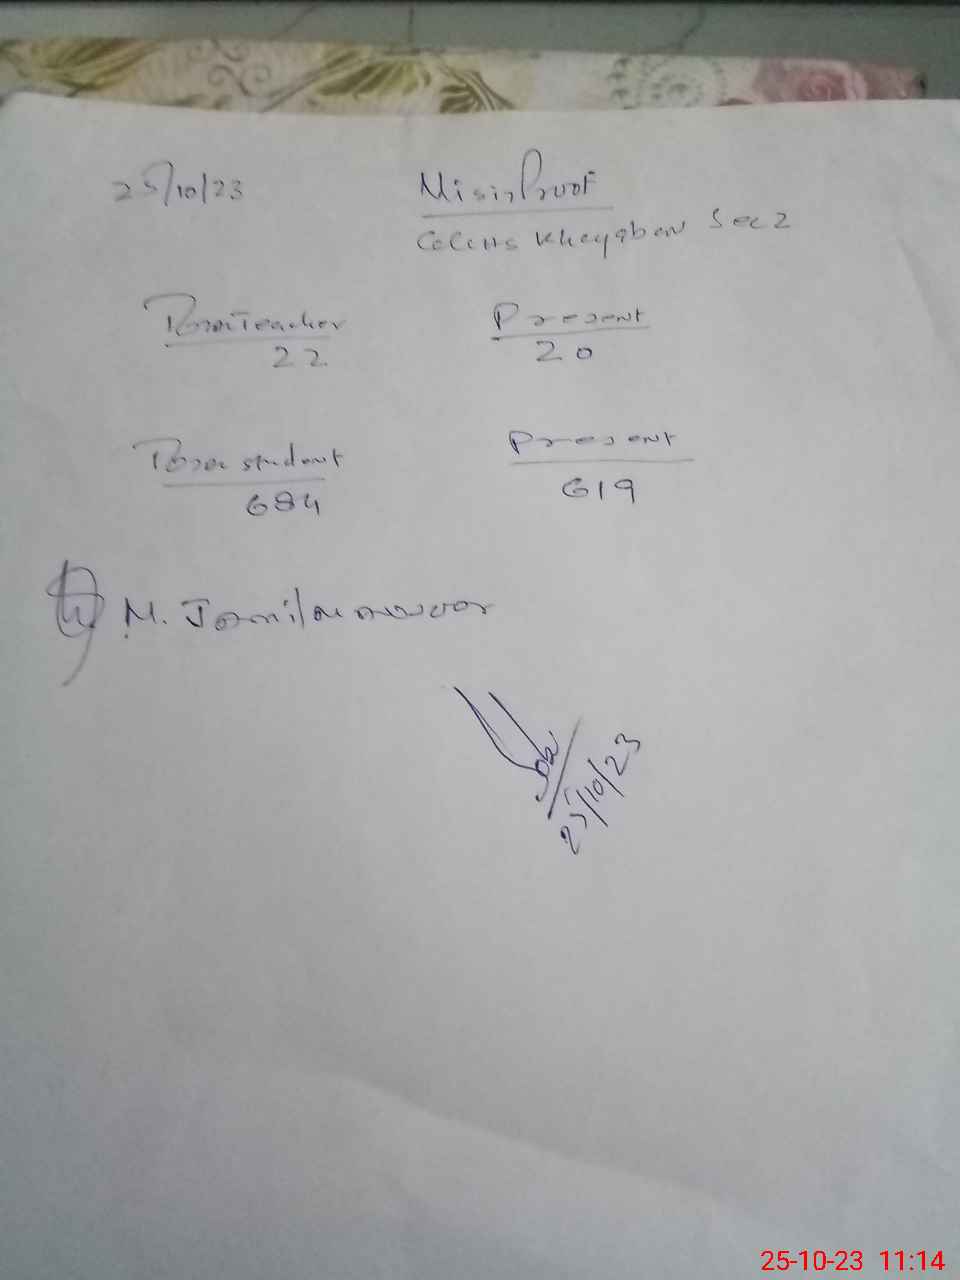 25/10/23
Visit Proof
Khayaban Sec 2
Total Teacher Present
22 20
Total student Present
684 619
M. Jamil
25/10/23
25-10-23 11:14